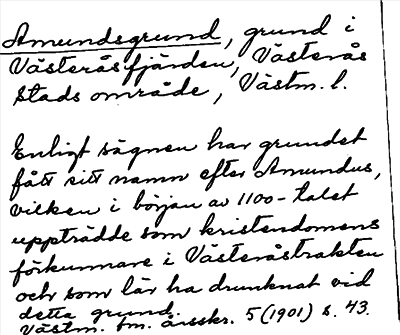 Amundsgrund, grund i
Västeråsfjärden, Västerås
stads område, Västm. l.
Enligt sägnen har grundet
fått sitt namn efter Amundus,
vilken i början av 1100-talet
uppträdde som kristendomens
förkunnare i Västeråstrakten
och som lär ha drunknat vid
detta grund.
Västm. fm. årsskr. 5 (1901) s. 43.